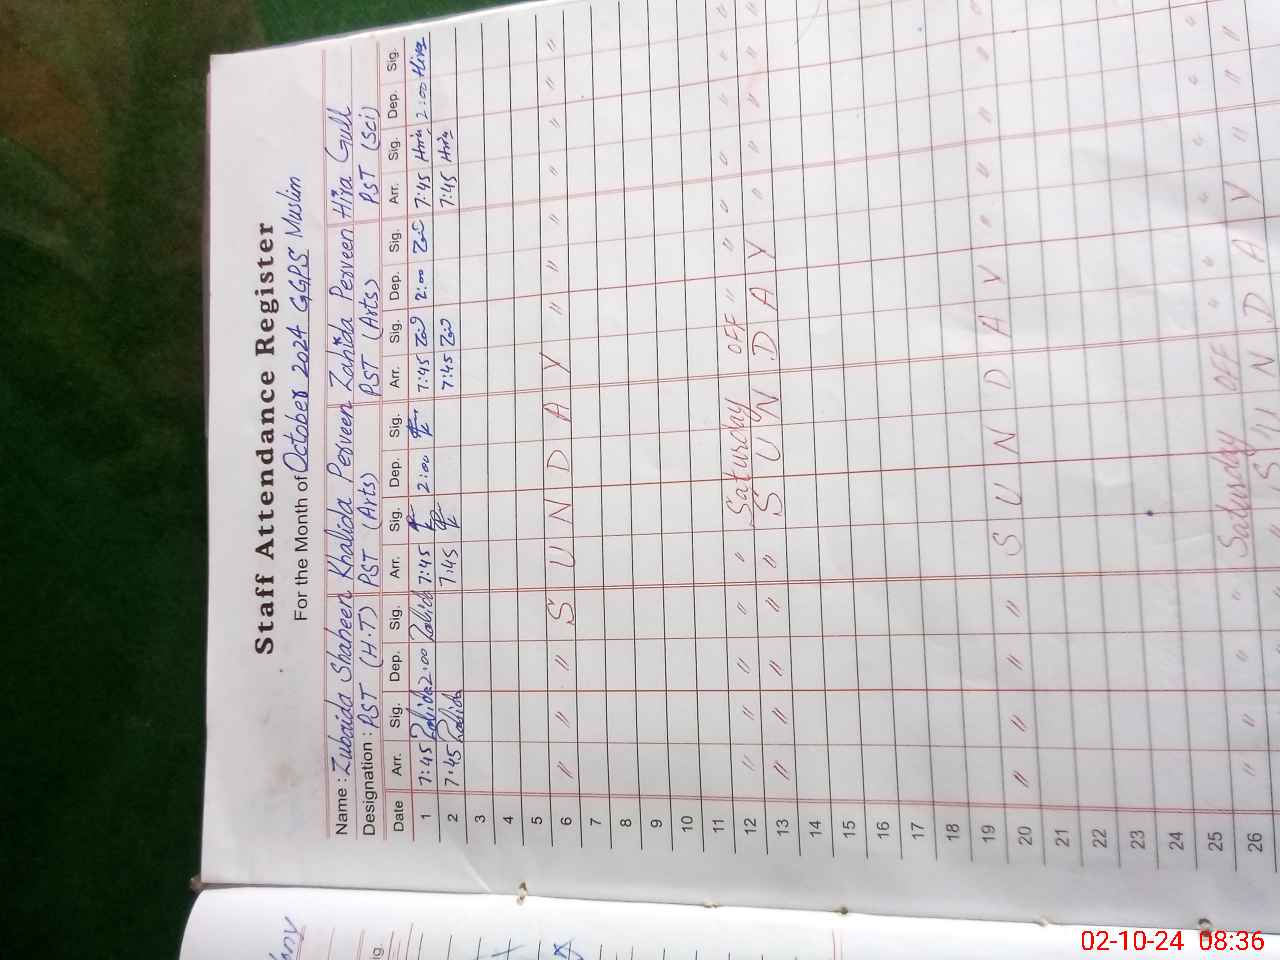 Staff Attendance Register
For the Month of October 2024 GGPS Muslim
Name : Zubaida Shaheen Khalida Perveen Zahida Perveen Hira Gull
Designation : PST (H.T) PST (Arts) PST (Arts) PST (Sci)
Date Arr. Sig. Dep. Sig. Arr. Sig. Dep. Sig. Arr. Sig. Dep. Sig. Arr. Sig. Dep. Sig.
1 7:45 2:00 7:45 2:00 7:45 2:00 7:45 Hira 2:00 Hira
2 7:45 7:45 7:45 7:45 Hira
3
4
5
6 " " " S U N D A Y " " " " " "
7
8
9
10
11
12 " " " " " Saturday OFF " " " " " "
13 " " " " S U N D A Y " " " "
14
15
16
17
18
19
20 " " " " S U N D A Y " " " "
21
22
23
24
25
26 " " " " Saturday OFF " " " " " "
" " " S U N D A Y " " "
02-10-24 08:36